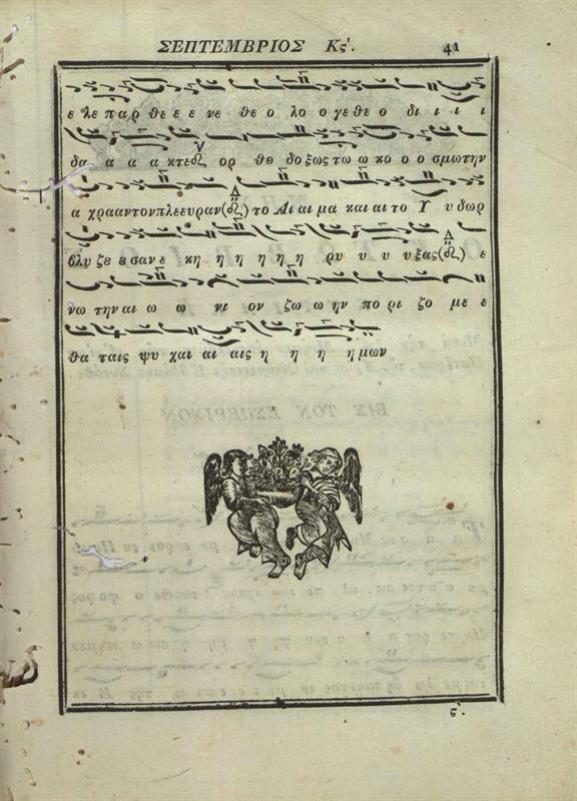 ΣΕΠΤΕΜΒΡΙΟΣ Κς΄. 41
ε λε παρ θε ε ε νε θε ο λο ο γε θε ο δι ι ι ι
δα α α α κτε ορ θο δο ξως τω ω κο ο ο σμω την
α χρααντονπλεευραν το Αι αι μα και αι το Υ υ δωρ
βλυ ζε ε σαν ε κη η η η η η ρυ υ υ υ ξας ε
νω την αι ω ω νι ον ζω ω ην πο ρι ζο με ε
θα ταις ψυ χαι αι αις η η η η μων
ς΄.